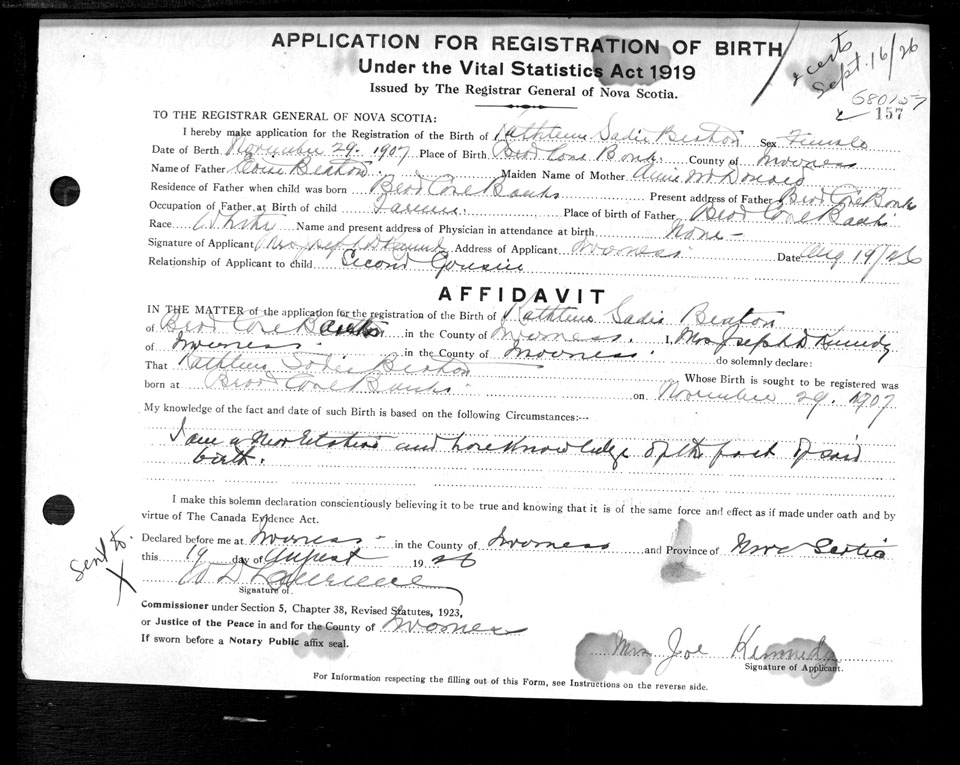 APPLICATION FOR REGISTRATION OF BIRTH
Under the Vital Statistics Act 1919
Issued by The Registrar General of Nova Scotia.
2 certs
Sept. 16/26
680157
157
TO THE REGISTRAR GENERAL OF NOVA SCOTIA:
I hereby make application for the Registration of the Birth of Kathleen Sadie Beaton Sex Female
Date of Birth November 29. 1907 Place of Birth Brod Cove Bank. County of Inverness
Name of Father Beaton Maiden Name of Mother Annie McDonald
Residence of Father when child was born Brod Cove Banks Present address of Father Brod Cove Bank
Occupation of Father at Birth of child Farmer. Place of birth of Father Brod Cove Banks
Race White Name and present address of Physician in attendance at birth None -
Signature of Applicant Mrs Joseph D Kennedy Address of Applicant Inverness. Date Aug 19/26
Relationship of Applicant to child Second Cousin
AFFIDAVIT
IN THE MATTER of the application for the registration of the Birth of Kathleen Sadie Beaton
of Brod Cove Banks in the County of Inverness. I, Mrs Joseph D Kennedy
of Inverness in the County of Inverness. do solemnly declare:
That Kathleen Sadie Beaton Whose Birth is sought to be registered was
born at Brod Cove Banks. on November 29. 1907.
My knowledge of the fact and date of such Birth is based on the following Circumstances:--
I am a near relative and have knowledge of the fact of said
birth.
I make this solemn declaration conscientiously believing it to be true and knowing that it is of the same force and effect as if made under oath and by
virtue of The Canada Evidence Act.
Sent to.
X
Declared before me at Inverness - in the County of Inverness and Province of Nova Scotia
this 19 day of August 1926
W D Lawrence
Signature of.
Commissioner under Section 5, Chapter 38, Revised Statutes, 1923,
or Justice of the Peace in and for the County of Inverness
If sworn before a Notary Public affix seal.
Mrs Joe Kennedy
Signature of Applicant.
For Information respecting the filling out of this Form, see Instructions on the reverse side.